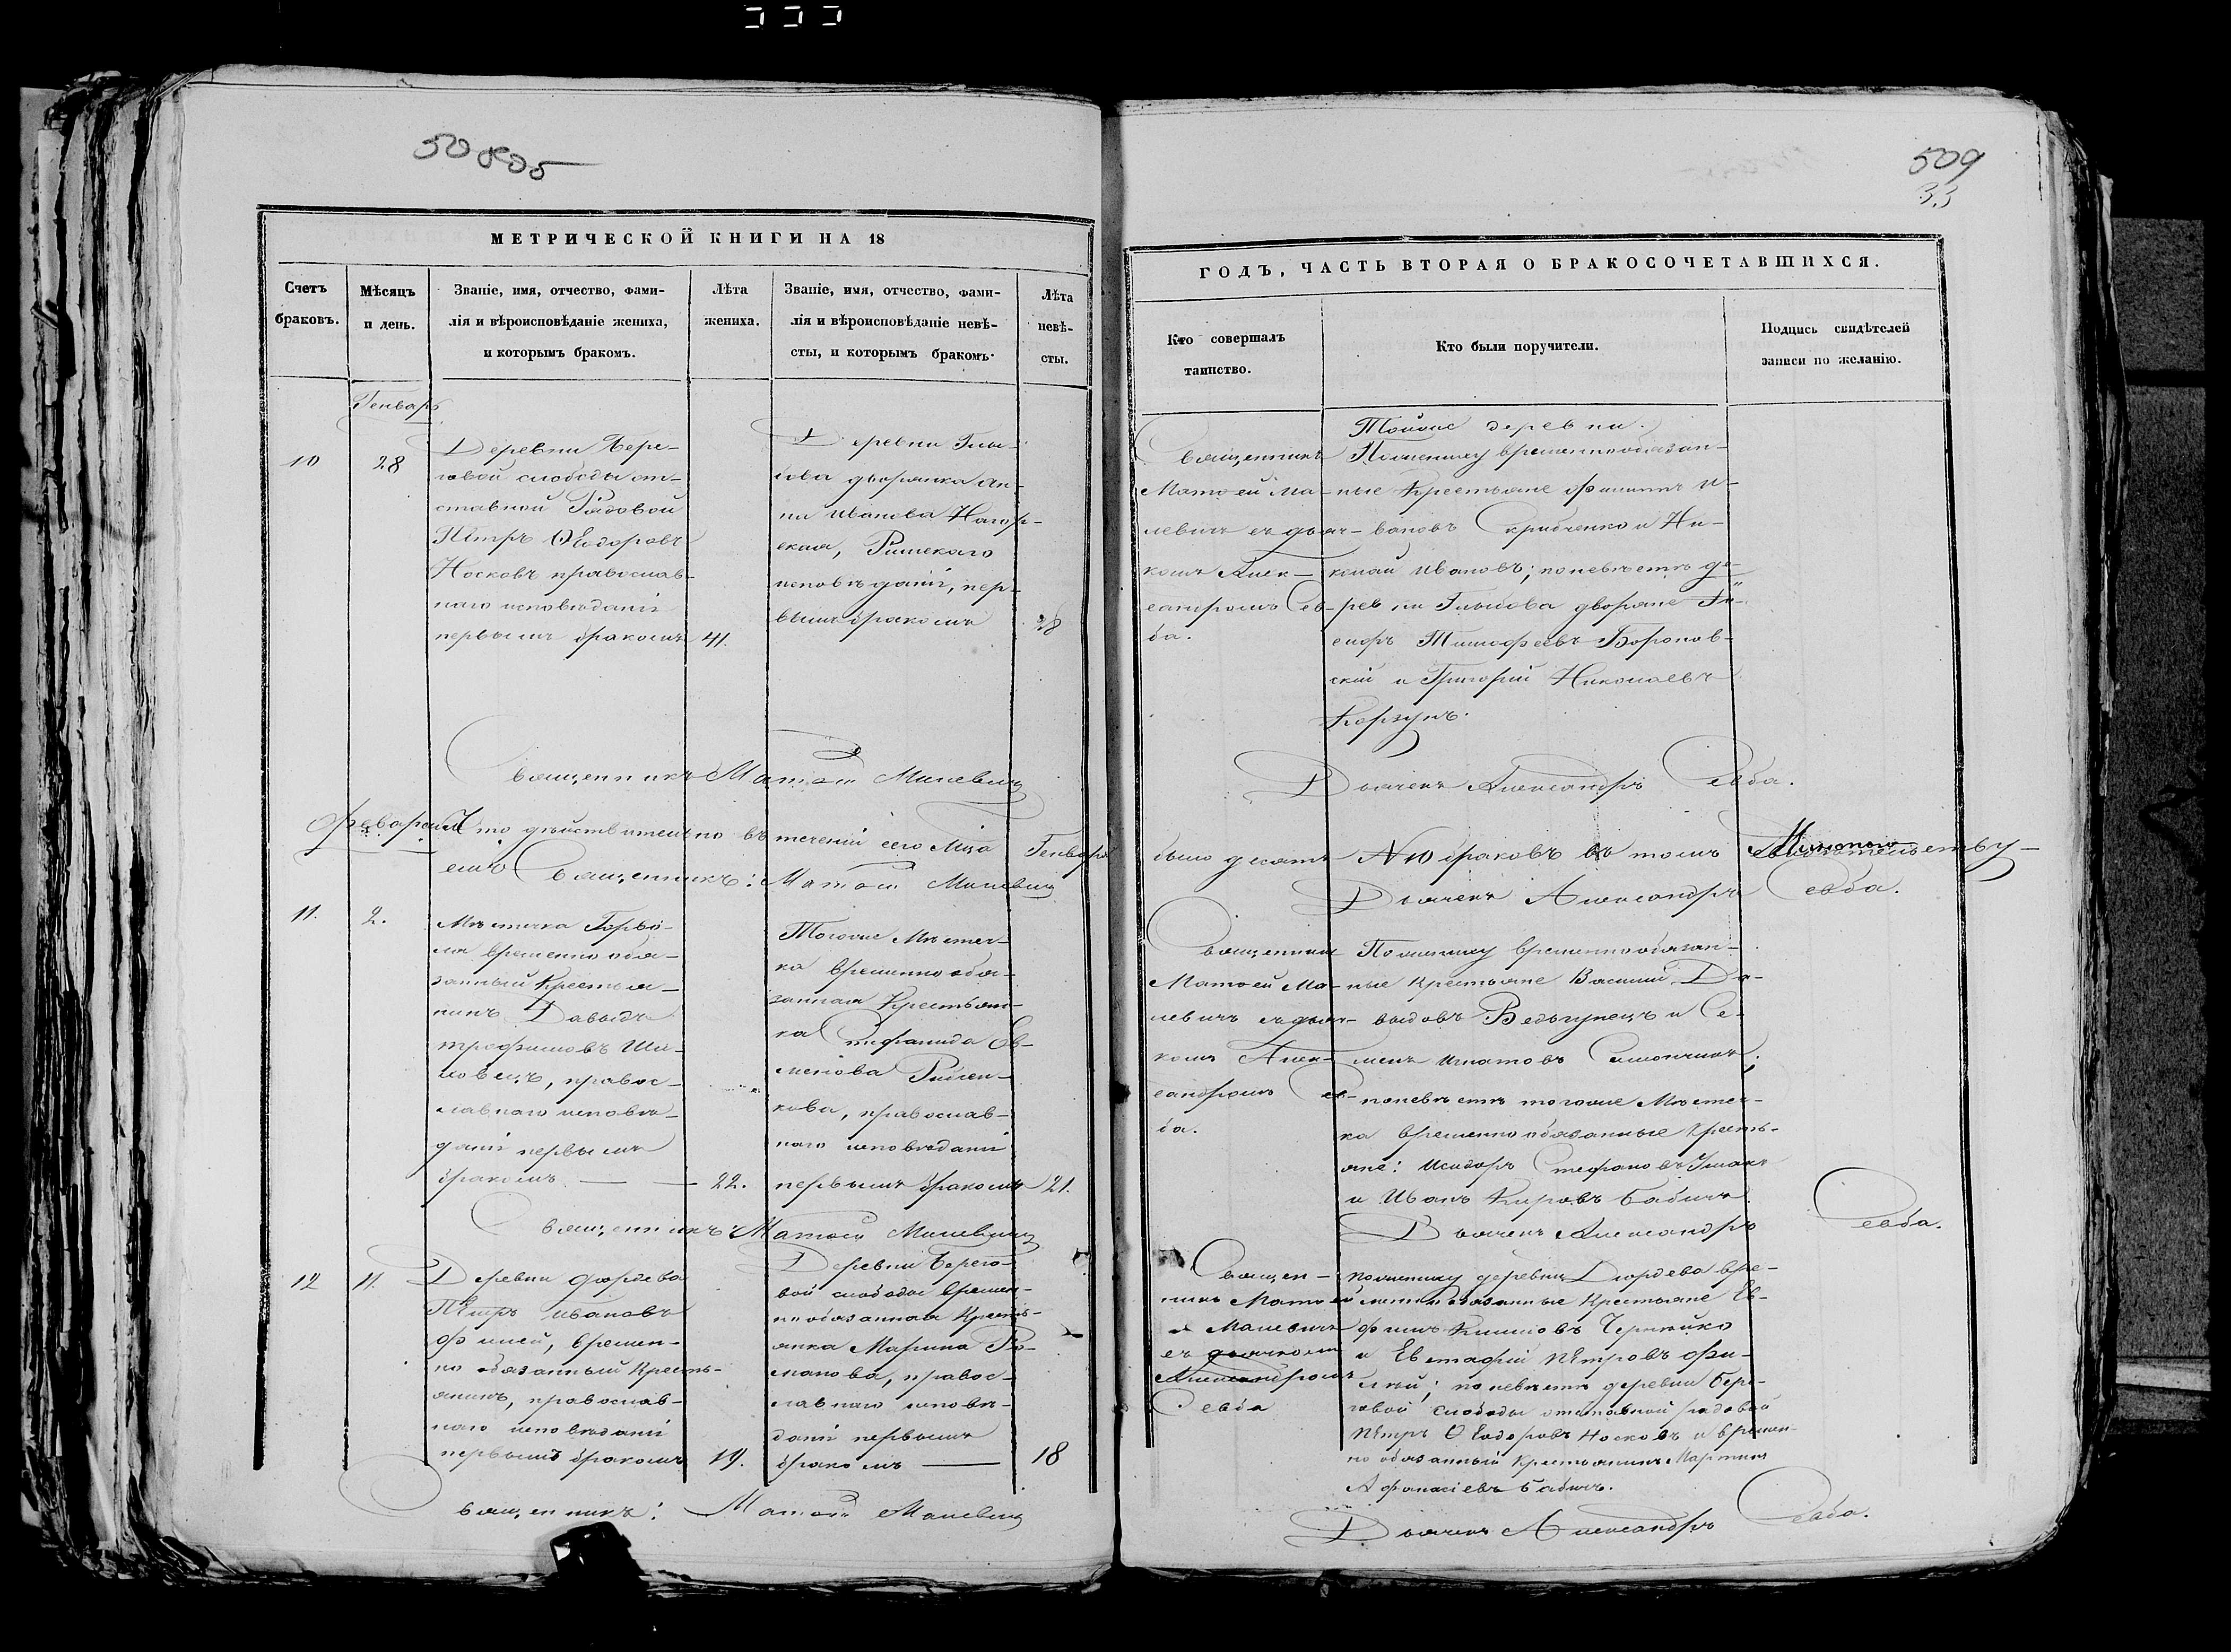 50805
МЕТРИЧЕСКОЙ КНИГИ НА 18
Счетъ браковъ.
Мѣсяцъ и день.
Званіе, имя, отчество, фами-
лія и вѣроисповѣданіе жениха,
и которымъ бракомъ.
Лѣта жениха.
Званіе, имя, отчество, фами-
лія и вѣроисповѣданіе невѣ-
сты, и которымъ бракомъ.
Лѣта невѣ-
сты.
Генварь
10
28
Деревни Бере-
говой слободы от-
ставной Рядовой
Пётръ Ѳеодоровъ
Носковъ православ-
наго исповѣданія
первымъ бракомъ
41.
Деревни Глы-
бова дворянка Ан-
на Иванова Нагор-
ская, Римскаго
исповѣданія, пер-
вымъ бракомъ
28
Священникъ Матѳей Малевичъ
Февраль
Что дѣйствительно въ теченіи сего Мца Генваря
сію Священникъ: Матѳей Малевичъ
11.
2.
Мѣстечка Горво-
ля временно обя-
занный Крестья-
нинъ Давыдъ
Трофимовъ
правос-
лавнаго исповѣ-
данія первымъ
бракомъ
22.
Тогоже Мѣстеч-
ка временно обя-
занная Крестьян-
ка Стефанида
православ-
наго исповѣданія
первымъ бракомъ
21.
Священникъ Матѳей Малевичъ
12
11.
Деревни
Пётръ Ивановъ
времен-
но обязанный Кресть-
янинъ, православ-
наго исповѣданія
первымъ бракомъ
19.
Деревни Берего-
вой слободы времен-
нообязанная Кресть-
янка Марина Ро-
манова, правос-
лавнаго исповѣ-
данія первымъ
бракомъ
18
Священникъ: Матѳей Малевичъ
509
33
ГОДЪ, ЧАСТЬ ВТОРАЯ О БРАКОСОЧЕТАВШИХСЯ.
Кто совершалъ
таинство.
Кто были поручители.
Подпись свидѣтелей
записи по желанію.
Священникъ
Матѳей Ма-
левичъ съ дьяч-
комъ Алек-
сандромъ Сев-
ба.
Тойже деревни.
По жениху временнообязан-
ные Крестьяне Филиппъ И-
вановъ Скрибченко и Ни-
колай Ивановъ; по невѣстѣ де-
ревни Глыбова дворяне
Тимофеевъ Воронов-
скій и Григорій Николаевъ
Корзунъ.
Дьячекъ Александръ Севба.
было десять №10 браковъ въ томъ свидѣтельству-
Дьячекъ Александръ Севба.
Священникъ
Матѳей Ма-
левичъ съ дьяч-
комъ Алек-
сандромъ Сев-
ба.
По жениху временнообязан-
ные Крестьяне Василій Да-
выдовъ Ведьгунецъ и Се-
менъ Игнатовъ
по невѣстѣ тогоже Мѣстеч-
ка временнообязанные Кресть-
яне: Исидоръ Стефановъ
и Иванъ Кировъ Бабичъ
Дьячекъ Александръ Севба.
Священ-
никъ Матѳей
Малевичъ
съ дьячкомъ
Александромъ
Севба
По жениху деревни временнообязанные Крестьяне Ев-
фимъ Климовъ
и Евстафій Пётровъ
по невѣстѣ деревни Бере-
говой слободы отставной рядовой
Пётръ Ѳеодоровъ Носковъ и времен-
но обязанный Крестьянинъ Мартинъ
Афанасіевъ Бабичъ.
Дьячекъ Александръ Севба.